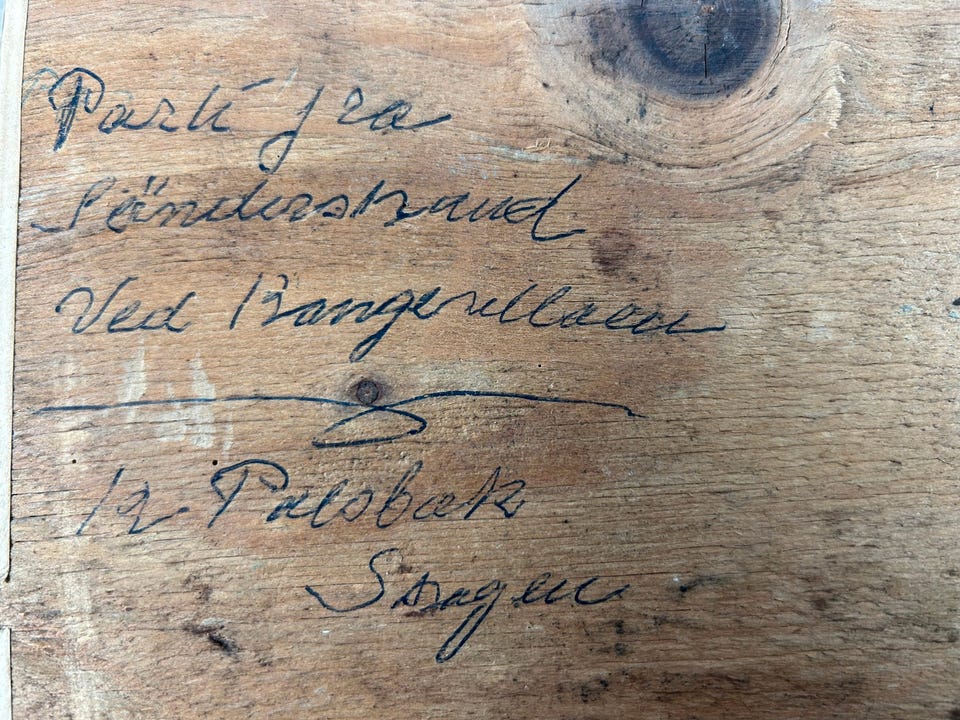 Parti fra
Sönderstrand
Ved Bangsvillaen
K. Palsbæk
Skagen